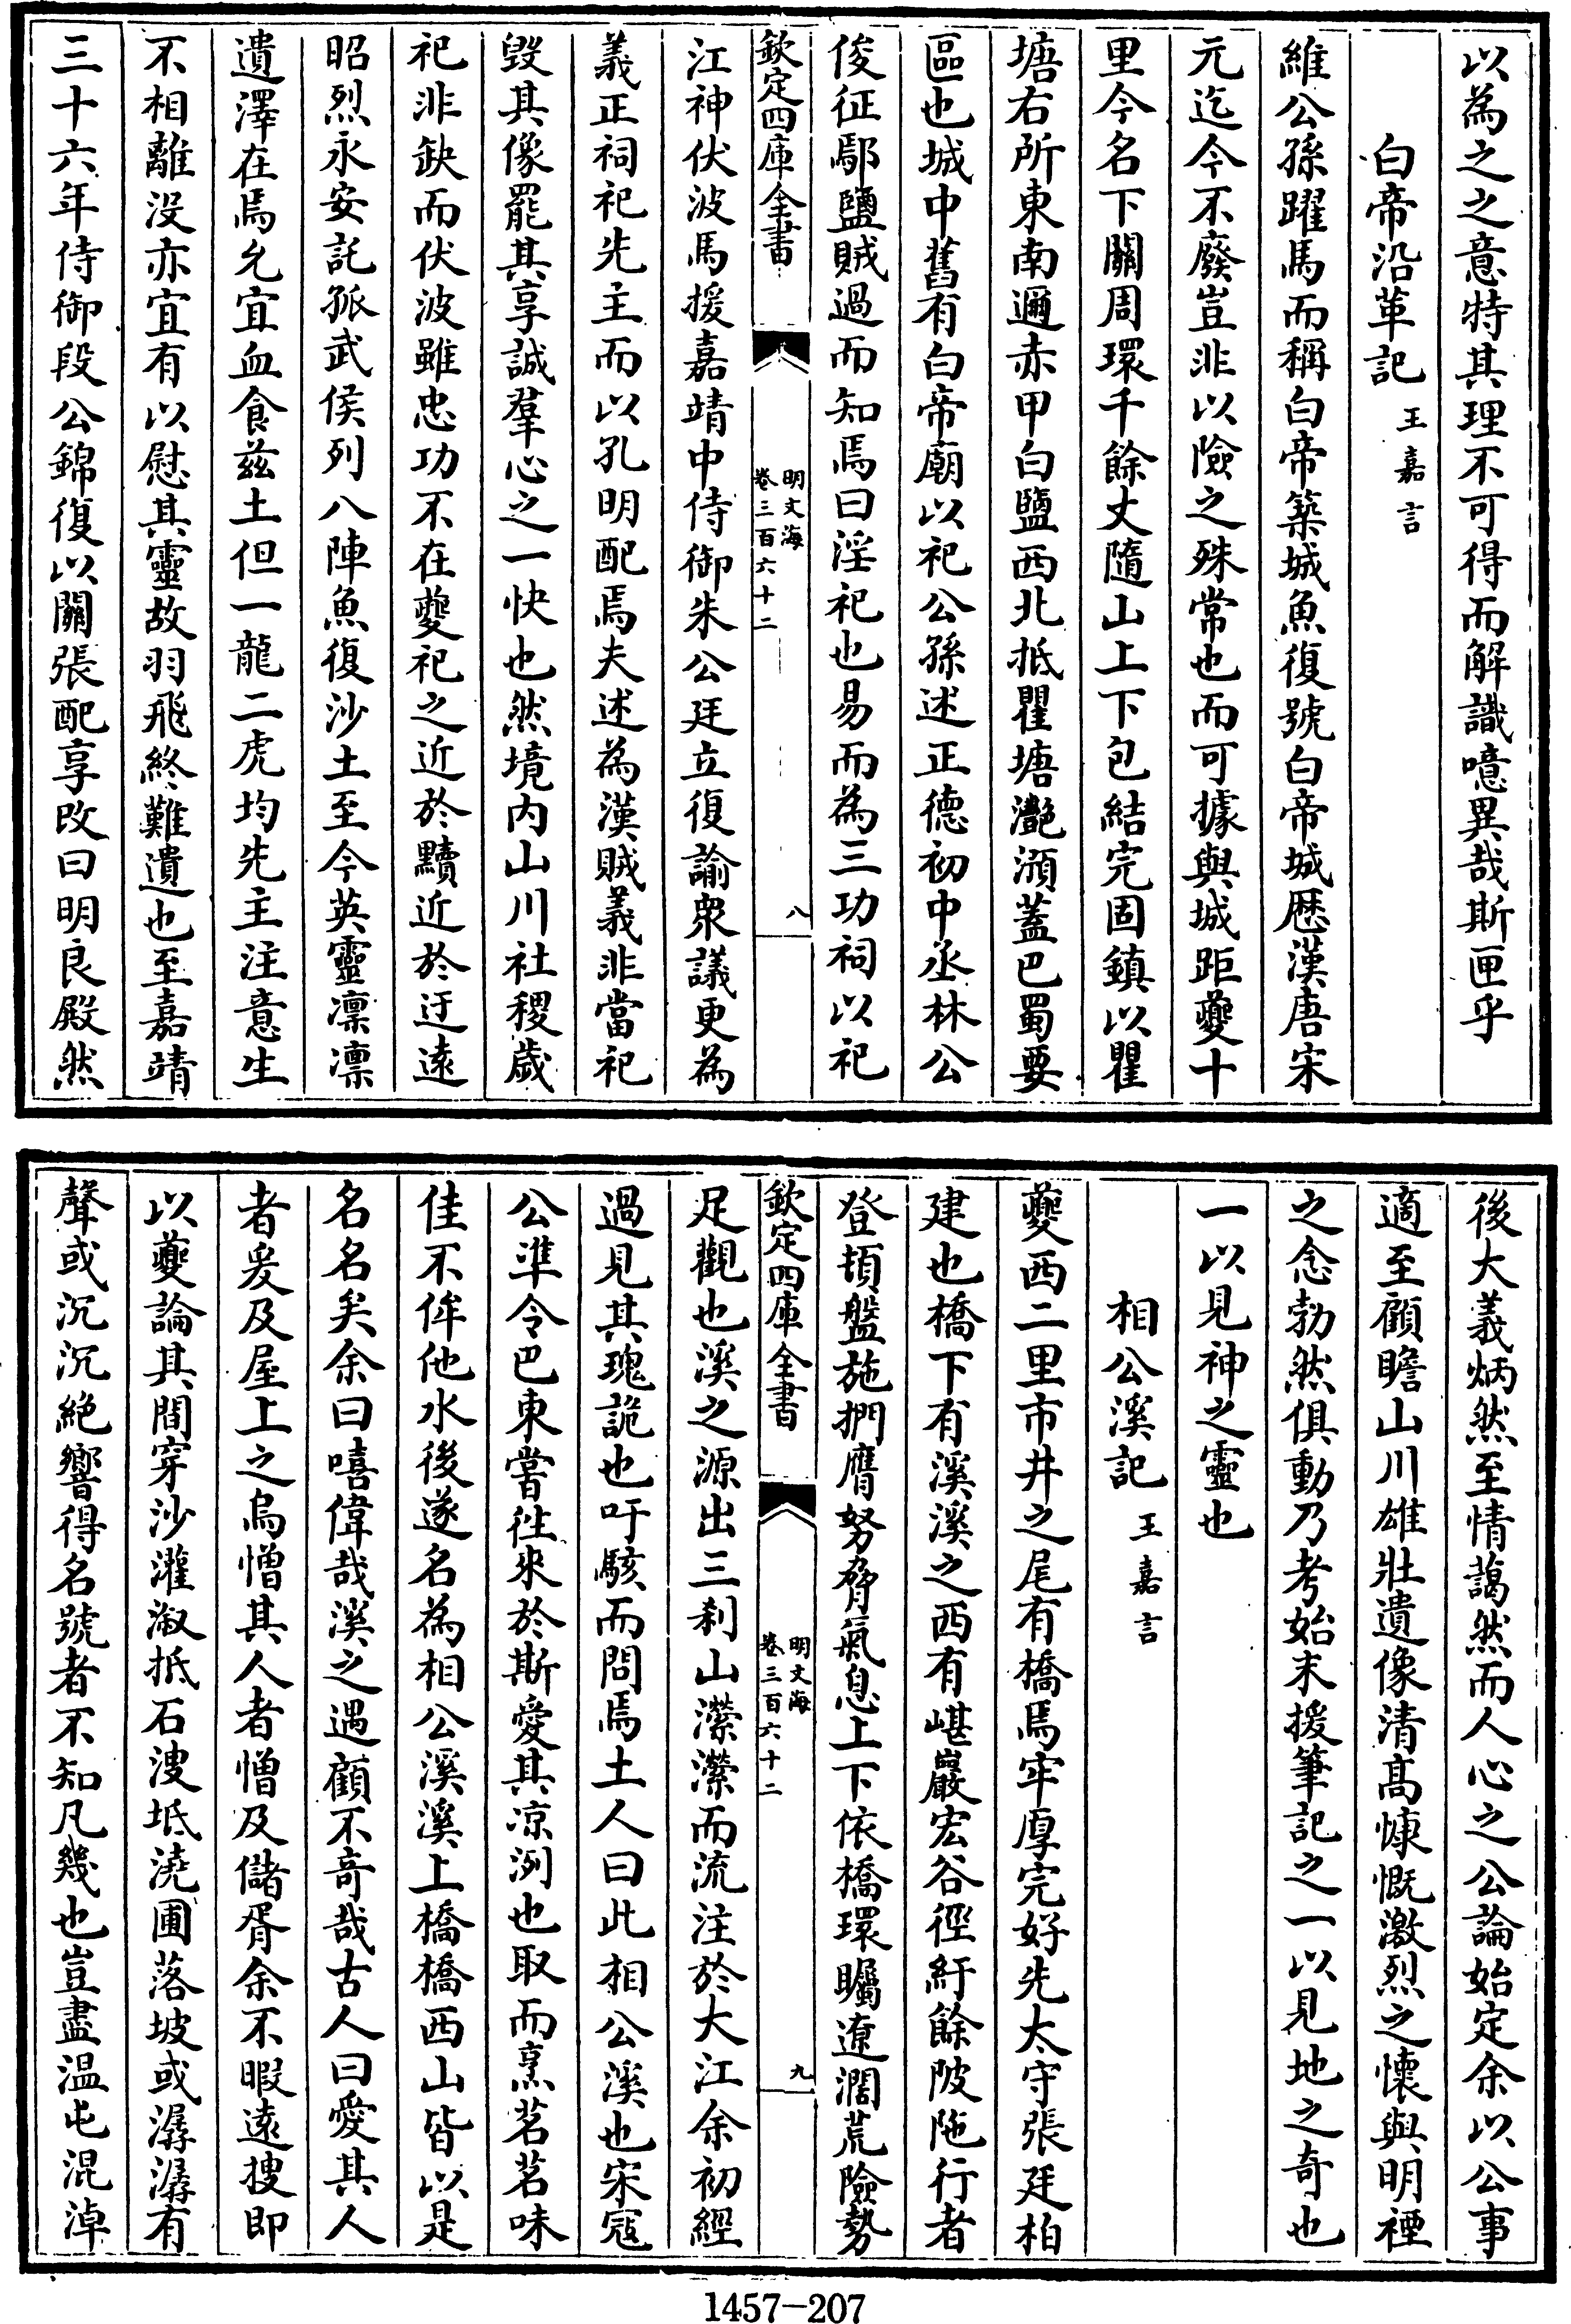 以為之之意特其理不可得而解識噫異哉斯匣乎
白帝沿革記 王嘉言
維公孫躍馬而稱白帝築城魚復號白帝城歷漢唐宋
元迄今不廢豈非以險之殊常也而可據與城距夔十
里今名下關周環千餘丈隨山上下包結完固鎮以瞿
塘右所東南通赤甲白鹽西北抵瞿塘灔澦蓋巴蜀要
區也城中舊有白帝廟以祀公孫述正德初中丞林公
俊征鄢鹽賊過而知焉曰淫祀也易而為三功祠以祀
欽定四庫全書
明文海
卷三百六十二
八
江神伏波馬援嘉靖中侍御朱公廷立復諭衆議更為
義正祠祀先主而以孔明配焉夫述為漢賊義非當祀
毀其像罷其享誠羣心之一快也然境內山川社稷歲
祀非缺而伏波雖忠功不在夔祀之近於黷近於迂遠
昭烈永安託孤武侯列八陣魚復沙土至今英靈凛凛
遺澤在焉允宜血食兹土但一龍二虎均先主注意生
不相離沒亦宜有以慰其靈故羽飛終難遺也至嘉靖
三十六年侍御段公錦復以關張配享改曰明良殿然
後大義炳然至情藹然而人心之公論始定余以公事
適至顧瞻山川雄壯遺像清髙慷慨激烈之懷與明禋
之念勃然俱動乃考始末援筆記之一以見地之奇也
一以見神之靈也
相公溪記 王嘉言
夔西二里市井之尾有橋焉牢厚完好先太守張廷柏
建也橋下有溪溪之西有嵁巖宏谷徑紆餘陂陁行者
登頓盤施捫膺努脅氣息上下依橋環矚遼濶荒險勢
欽定四庫全書
明文海
卷三百六十二
九
足觀也溪之源出三剎山瀠瀠而流注於大江余初經
過見其瑰詭也吁駭而問焉土人曰此相公溪也宋寇
公準令巴東嘗徃來於斯愛其凉洌也取而烹茗茗味
佳不侔他水後遂名為相公溪溪上橋橋西山皆以是
名名矣余曰嘻偉哉溪之遇顧不奇哉古人曰愛其人
者爰及屋上之烏憎其人者憎及儲胥余不暇遠搜即
以夔論其間穿沙灌溆抵石溲坻澆圃落坡或潺潺有
聲或沉沉絶響得名號者不知凡幾也豈盡温屯混淖
1457-207